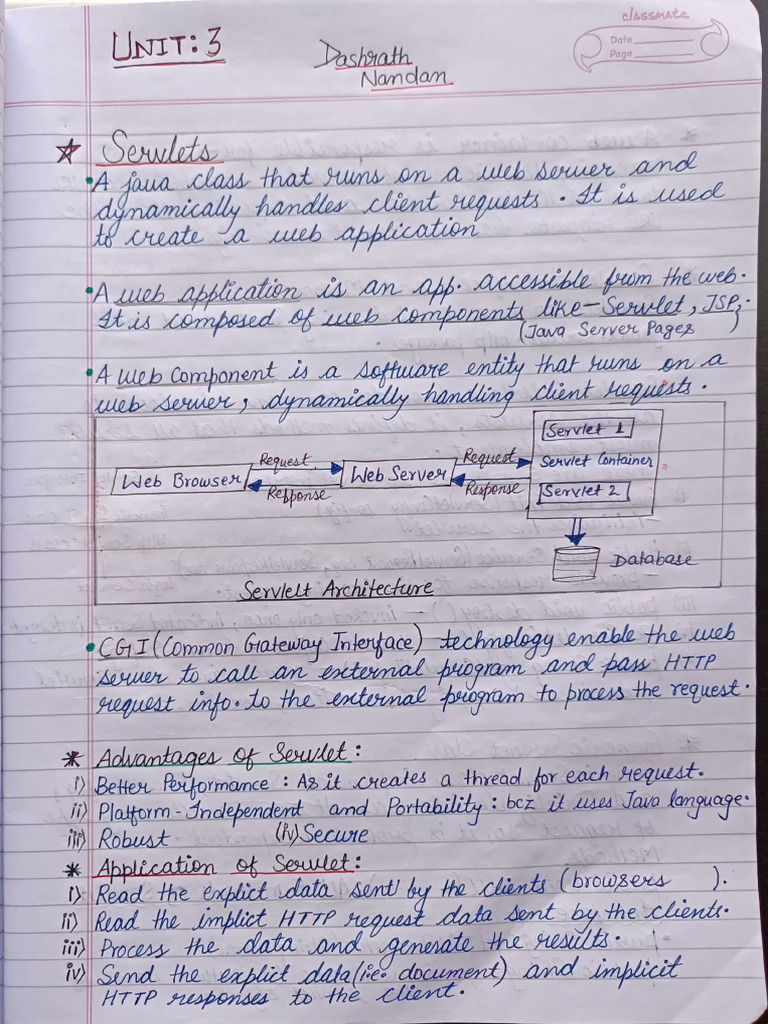 classmate
Date
Page
UNIT: 3
Dashrath
Nandan
Servlets
A java class that runs on a web server and
dynamically handles client requests. It is used
to create a web application
A web application is an app. accessible from the web.
It is composed of web components like-Servlet, JSP,.
(Java Server Pages )
A web Component is a software entity that runs on a
web server, dynamically handling client requests.
Servlet 1
Request
Request
Web Browser
Web Server
Servlet Container
Response
Response
Servlet 2
Database
Servlelt Architecture
CGI (Common Gateway Interface) technology enable the web
server to call an external program and pass HTTP
request info. to the external program to process the request.
* Advantages of Servlet:
i) Better Performance : As it creates a thread for each request.
ii) Platform-Independent and Portability : bcz it uses Java language.
iii) Robust (iv) Secure
* Application of Servlet:
i) Read the explict data sent by the clients (browsers ).
ii) Read the implict HTTP request data sent by the clients.
iii) Process the data and generate the results.
iv) Send the explict data (i.e. document) and implicit
HTTP responses to the client.